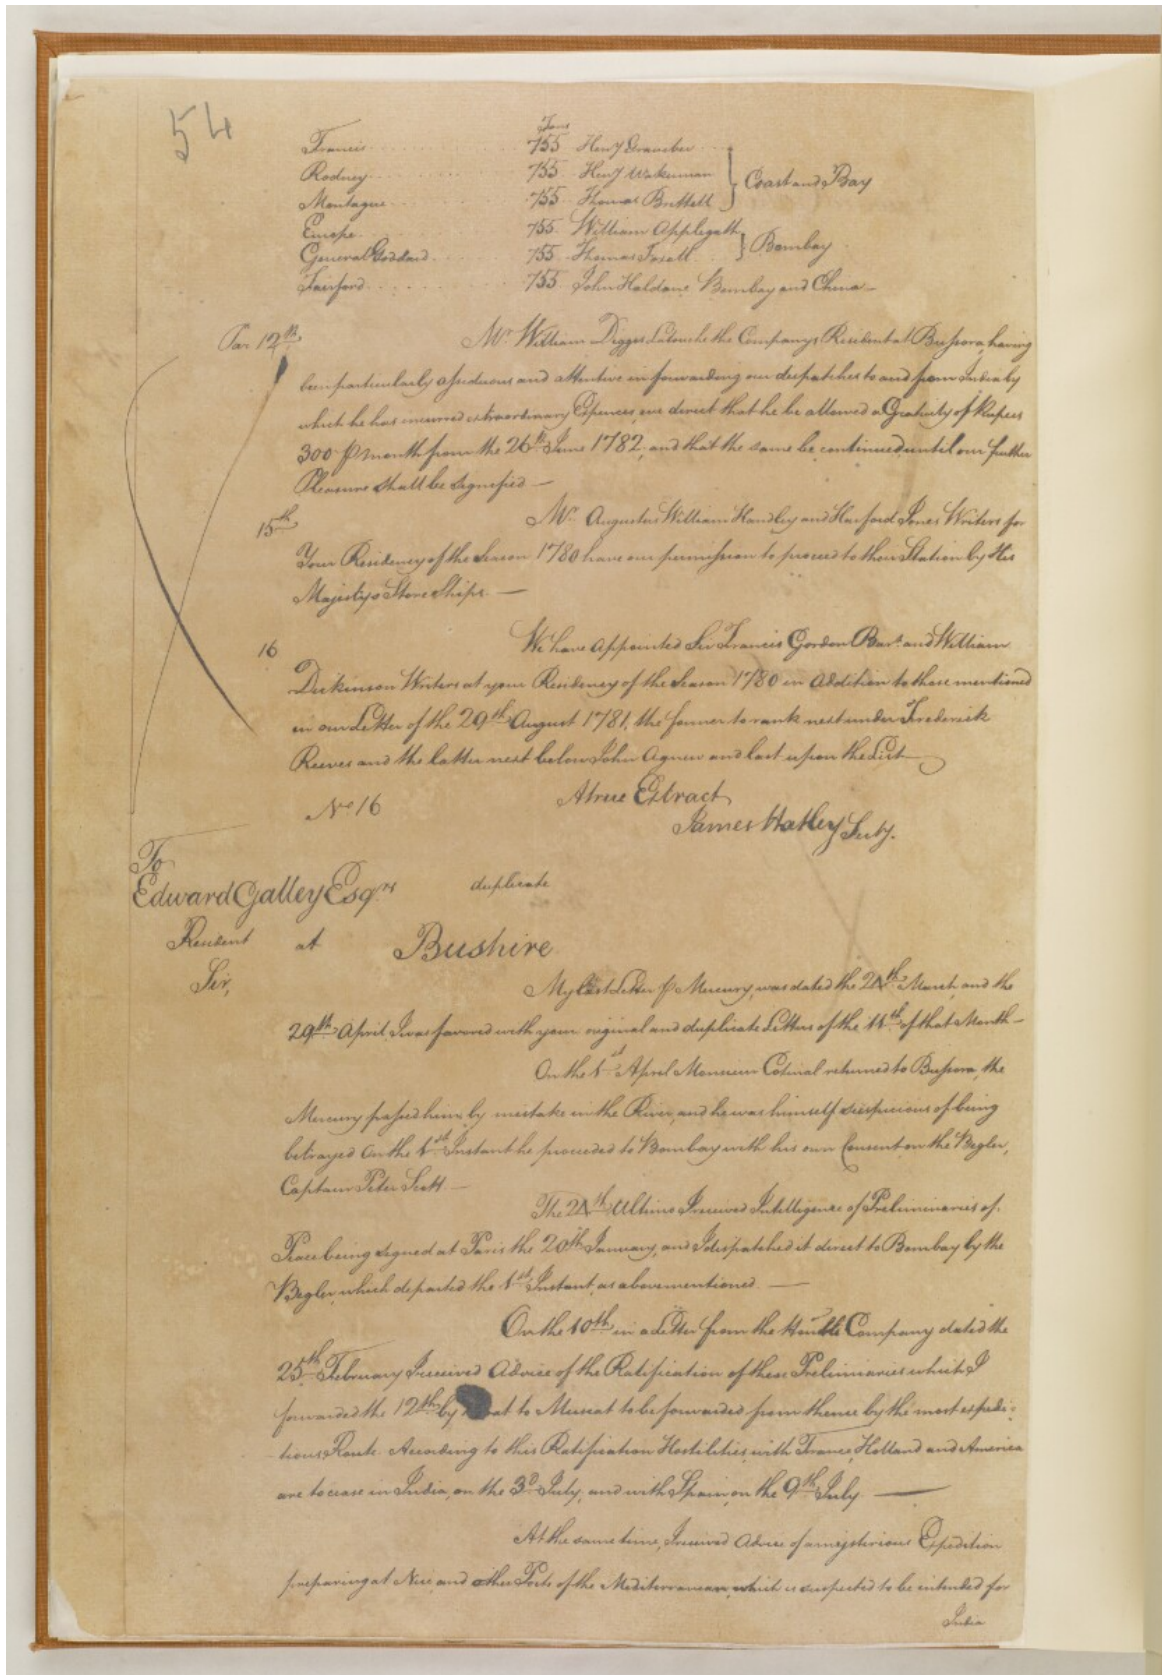 54
Tons
Francis 755 Heny Graueber
Rodney 755 Heny Wakeman } Coast and Bay
Montague 755 Thomas Brettell
Europe 755 William Applegath
General Goddard 755 Thomas Foxall } Bombay
Fairford 755 John Haldane Bombay and China
Par 12th Mr William Digges Latouche the Companys Resident at Bussora, having
been particularly assiduous and attentive in forwarding our despatches to and from India by
which he has incurred extraordinary Expences, we direct that he be allowed a Gratuity of Rupees
300 P month from the 26th June 1782, and that the same be continued until our further
Pleasure shall be signified
15th Mr Augustus William Handley and Harford Jones Writers for
Your Residency of the Season 1780 have our permission to proceed to their Station by His
Majestys Store Ships.
16 We have appointed Sir Francis Gordon Bart. and William
Dickinson Writers at your Residency of the Season 1780 in Addition to those mentioned
in our Letter of the 29th August 1781, the former to rank next under Frederick
Reeves and the latter next below John Agnew and last upon the List
No 16 A true Extract
James Hatley Secty.
To
Edward Galley Esqr duplicate
Resident at Bushire
Sir,
My last Letter P Mercury, was dated the 24th March, and the
29th April I was favored with your original and duplicate Letters of the 11th of that Month
On the 1st April Monsieur Cotinal returned to Bussora, the
Mercury passed him by mistake in the River, and he was himself suspicious of being
betrayed On the 1st Instant he proceeded to Bombay with his own Consent on the Begler,
Captain Peter Scott
The 24th Ultimo I received Intelligence of Preliminaries of
Peace being signed at Paris the 20th January, and I dispatched it direct to Bombay by the
Begler, which departed the 1st Instant, as abovementioned.
On the 10th in a Letter from the Honble Company dated the
25th February I received Advice of the Ratification of these Preliminaries which I
forwarded the 12th by at to Muscat to be forwarded from thence by the most expedi-
-tious Route. According to this Ratification Hostilities, with France, Holland and America
are to cease in India, on the 3d July, and with Spain, on the 9th July.
At the same time, I received Advice of a mysterious Expedition
preparing at Nice and other Ports of the Mediterranean, which is suspected to be intended for
India